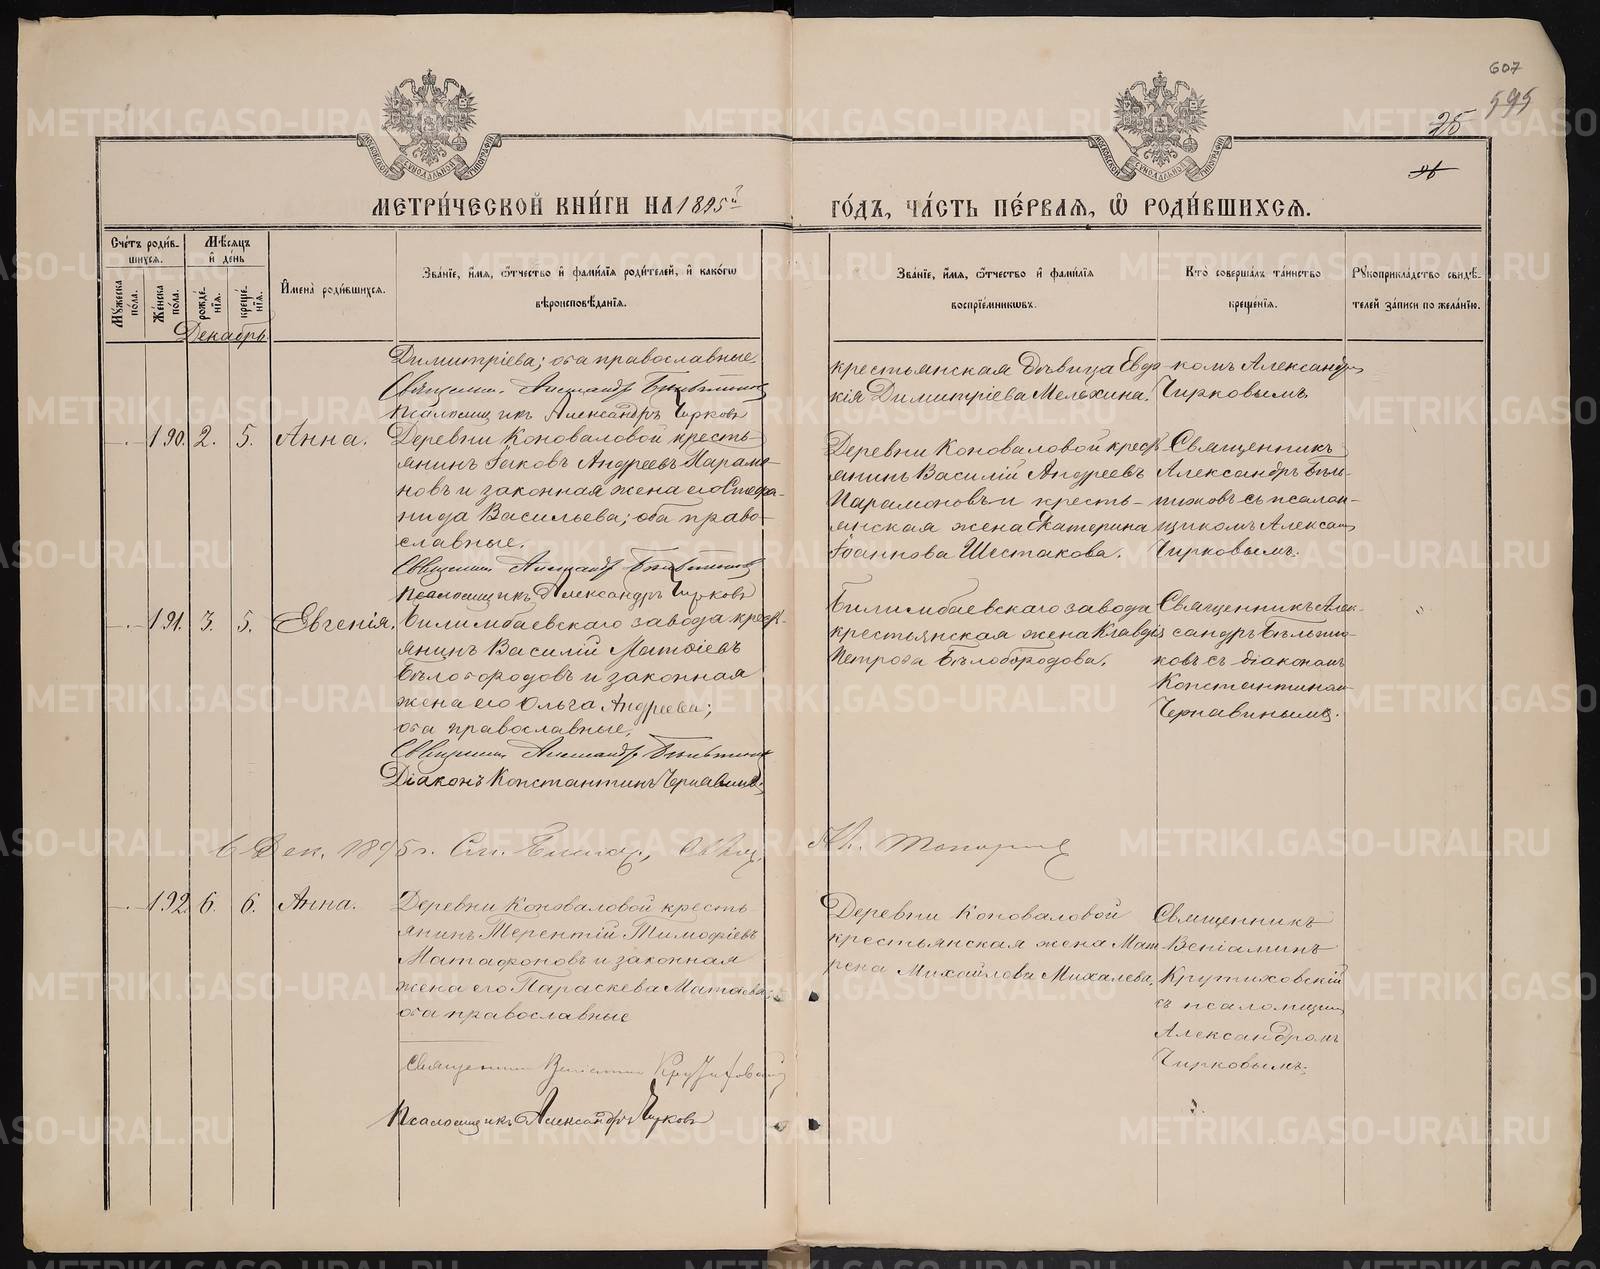 607
595
25
МЕТРИ́ЧЕСКОЙ КНИ́ГИ НА 1895й ГО́ДЪ, ЧА́СТЬ ПЕ́РВАЯ, Ѡ РОДИ́ВШИХСЯ.
Сче́тъ роди́в-
шихся.
Мꙋжеска по́ла.
Же́нска по́ла.
Мѣ́сяцъ и де́нь
рожде́-нїя.
креще́-нїя.
И҆мена̀ роди́вшихся.
Зва́нїе, и҆́мя, ѻ҆́тчество и҆ фами́лїя роди́телей, и҆ како́гѡ
вѣроисповѣ́данїя.
Зва́нїе, и҆́мя, ѻ҆́тчество и҆ фами́лїя
воспрїе́мникѡвъ.
Кто̀ соверша́лъ та́инство
креще́нїя.
Рꙋкоприкла́дство свидѣ́-
телей за́писи по жела́нїю.
Декабрь
Димитріева; оба православные.
Александръ
Псаломщикъ Александръ Чирковъ
крестьянская дѣвица Евдо-
кія Димитріева Мельхина.
комъ Александр
Чирковымъ
190. 2. 5. Анна.
Деревни Коноваловой кресть-
янинъ Іаковъ Андреевъ Парамо-
новъ и законная жена его Стефа-
нида Васильева; оба право-
славные.
Александръ
Псаломщикъ Александръ Чирковъ
Деревни Коноваловой крест-
янинъ Василій Андреевъ
Парамоновъ и кресть-
янская жена Екатерина
Іоаннова Шестакова.
Священникъ
Александръ Бѣль-
тюковъ съ псалом-
щикомъ Алексан
Чирковымъ.
191. 3. 5. Евгенія.
Билимбаевскаго завода крест-
янинъ Василій Матѳіевъ
Бѣлобородовъ и законная
жена его Ольга Андреева;
оба православные.
Александръ
Діаконъ Константинъ Чернавинъ
Билимбаевскаго завода
крестьянская жена Клавдія
Петрова Бѣлобородова.
Священникъ Алек-
сандръ Бѣльтю-
ковъ съ діакономъ
Константиномъ
Чернавинымъ.
6 Дек. 1895 г.
192. 6. 6. Анна.
Деревни Коноваловой кресть-
янинъ Терентій Тимофіевъ
Матафоновъ и законная
жена его Параскева Матѳіева;
оба православные
Священникъ Веніаминъ Крутиховскій
Псаломщикъ Александръ Чирковъ
Деревни Коноваловой
крестьянская жена Мат-
рена Михайлова Михалева.
Священникъ
Веніаминъ
Крутиховскій
съ псаломщик
Александромъ
Чирковымъ.
METRIKI.GASO-URAL.RU